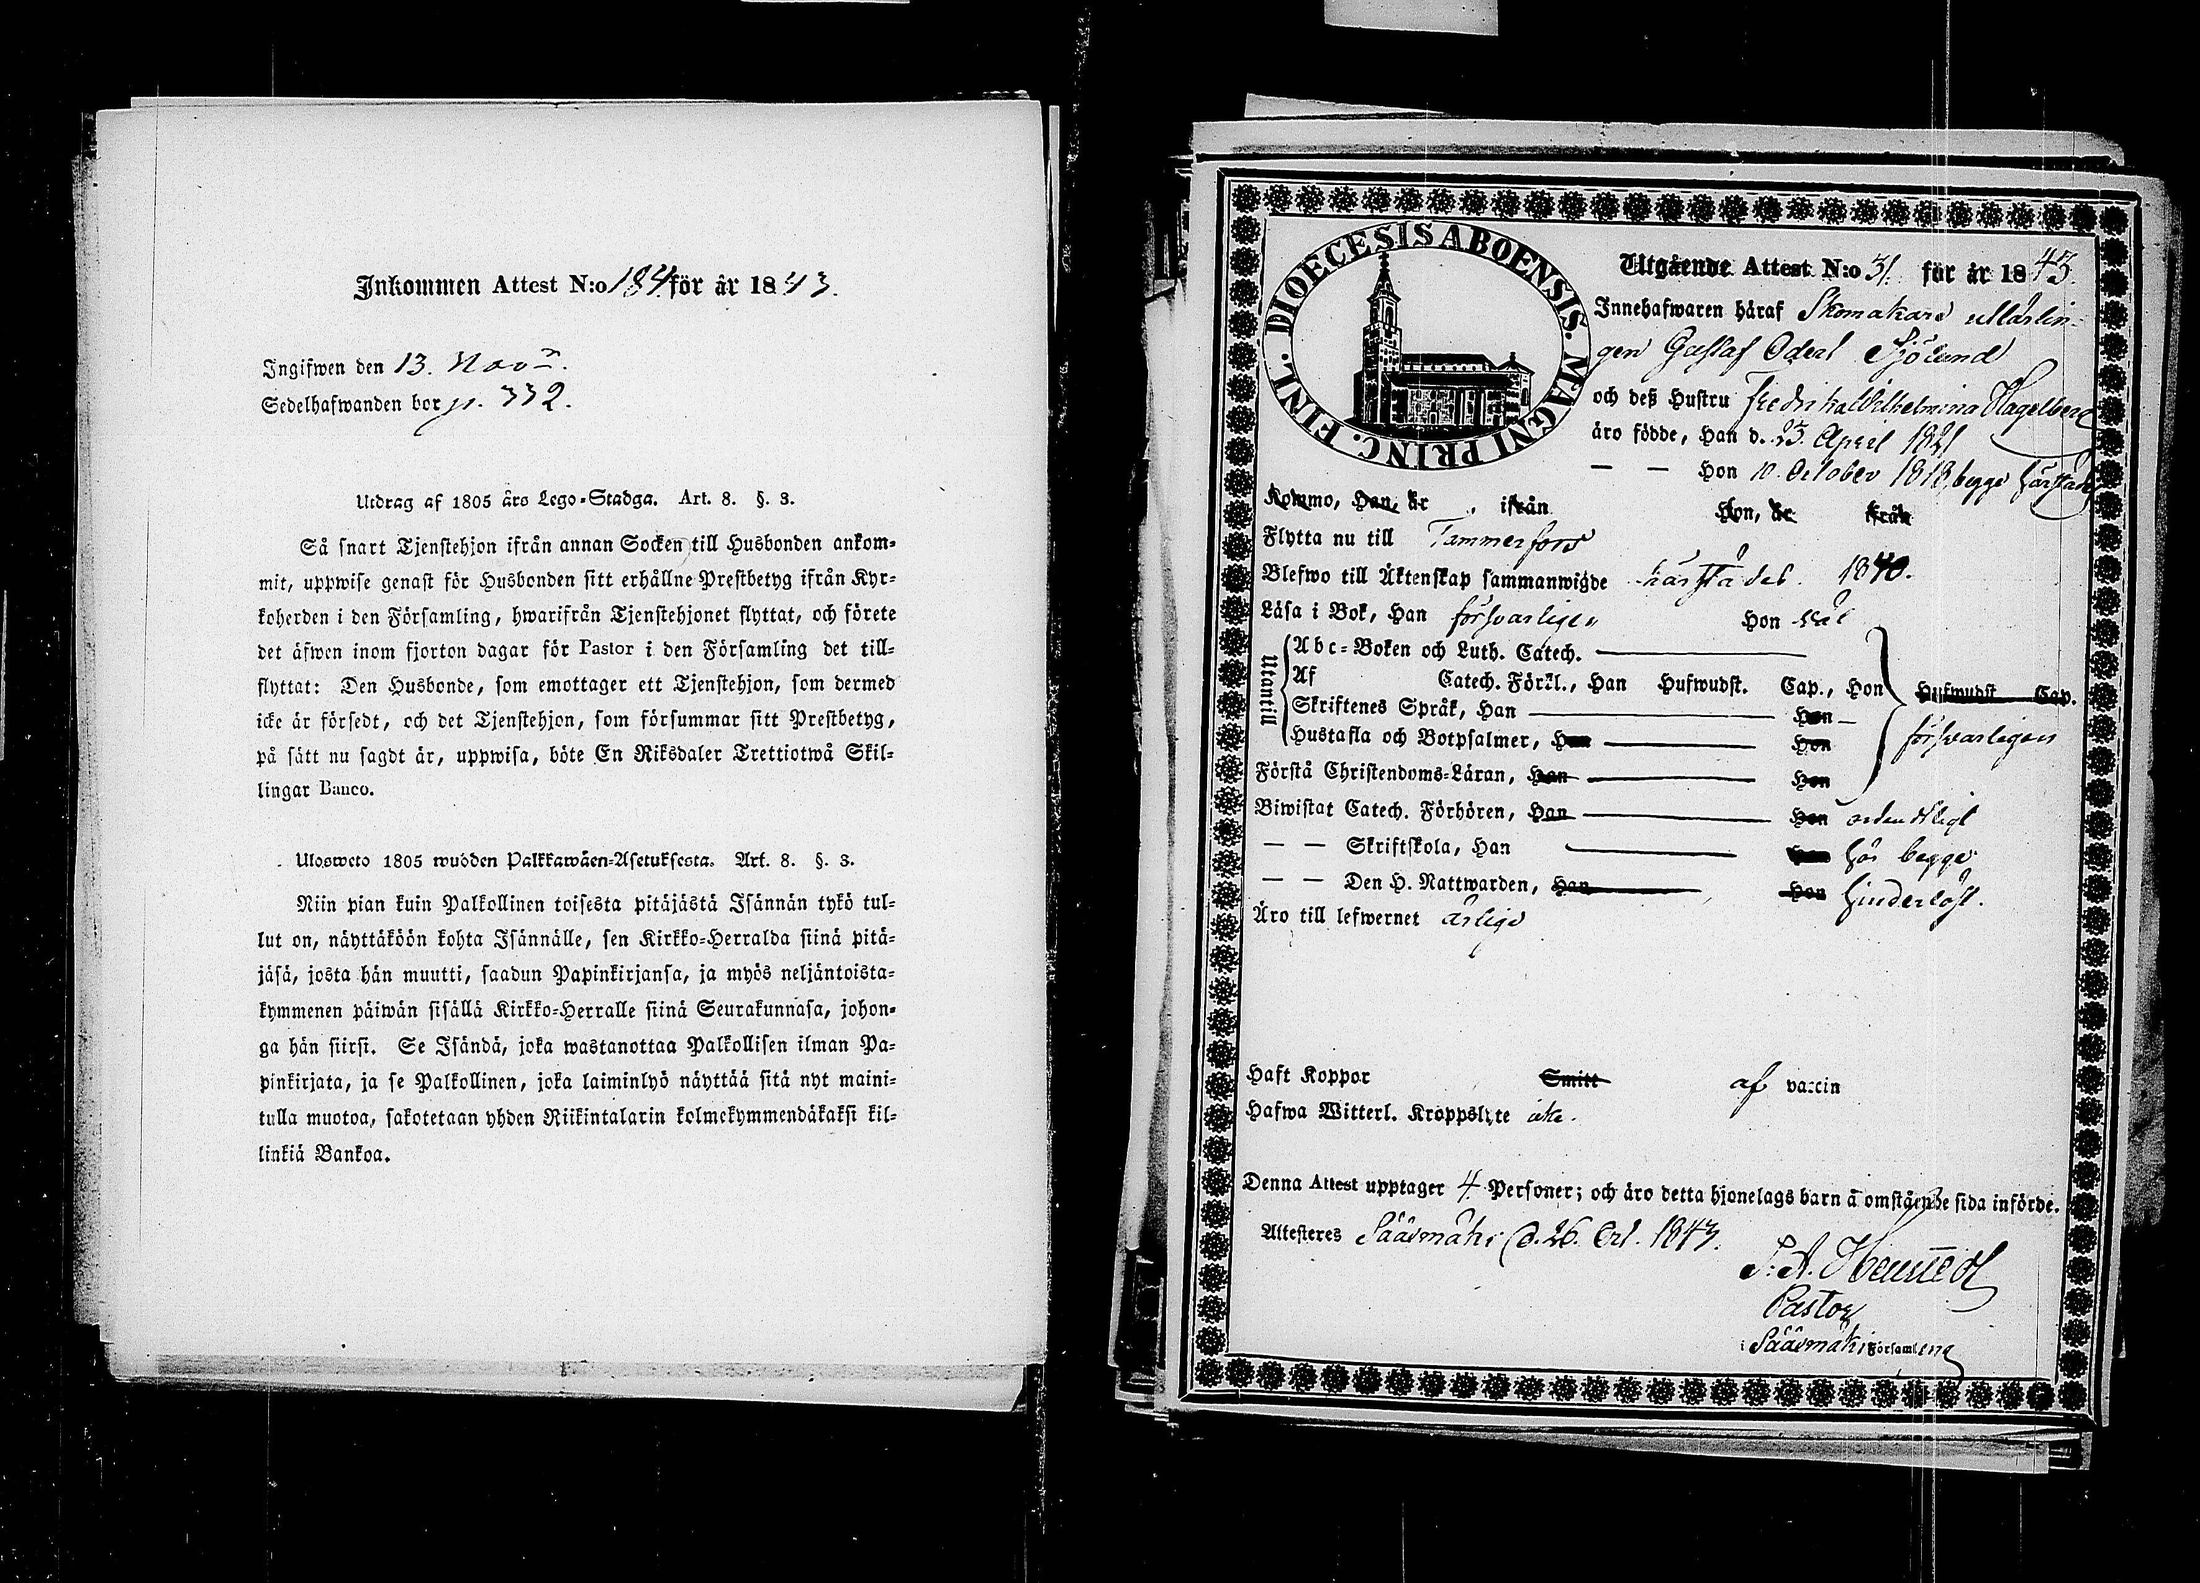 Inkommen Attest N:o 184. för år 1843.
Ingifwen den 13. Nov.
Sedelhafwanden bor p. 332.
Utdrag af 1805 års Lego-Stadga. Art. 8. §. 3.
Så snart Tjenstehjon ifrån annan Socken till Husbonden ankom-
mit, uppwise genast för Husbonden sitt erhållne Prestbetyg ifrån Kyr-
koherden i den Församling, hwarifrån Tjenstehjonet flyttat, och förete
det äfwen inom fjorton dagar för Pastor i den Församling det till-
flyttat: Den Husbonde, som emottager ett Tjenstehjon, som dermed
icke är försedt, och det Tjenstehjon, som försummar sitt Prestbetyg,
på sätt nu sagdt är, uppwisa, böte En Riksdaler Trettiotwå Skil-
lingar Banco.
Ulosweto 1805 wuoden Palkkawäen-Asetuksesta. Art. 8. §. 3.
Niin pian kuin Palkollinen toisesta pitäjästä Isännän tykö tul-
lut on, näyttäköön kohta Isännälle, sen Kirkko-Herralda siinä pitä-
jäsä, josta hän muutti, saadun Papinkirjansa, ja myös neljäntoista-
kymmenen päiwän sisällä Kirkko-Herralle siinä Seurakunnasa, johon-
ga hän siirsi. Se Isändä, joka wastanottaa Palkollisen ilman Pa-
pinkirjata, ja se Palkollinen, joka laiminlyö näyttää sitä nyt maini-
tulla muotoa, sakotetaan yhden Riikintalarin kolmekymmendäkaksi kil-
linkiä Bankoa.
DIOECESIS ABOENSIS. MAGNI PRINC. FINL.
Utgående Attest N:o 31. för år 1843.
Innehafwaren häraf Skomakare Mäslin-
gen Gustaf Odert Sjölund
och deß Hustru Fredrika Wilhelmina Hagelberg
äro födde, Han d. 23. April 1821
— — Hon 10. October 1818, begge härstädes
Kommo, Han, är , ifrån Hon, är ifrån
Flytta nu till Tammerfors
Blefwo till Äktenskap sammanwigde härstädes 1840.
Läsa i Bok, Han försvarligen Hon väl
Utantill
Abc-Boken och Luth. Catech.
Af Catech. Förkl., Han Hufwudst. Cap., Hon Hufwudst. Cap.
Skriftenes Språk, Han Hon
Hustafla och Botpsalmer, Han Hon försvarligen
Förstå Christendoms-Läran, Han Hon
Biwistat Catech. Förhören, Han Hon ordentligt
— — Skriftskola, Han Hon här begge
— — Den H. Nattwarden, Han Hon hinderlöst.
Äro till lefwernet ärlige
Haft Koppor Smitt af vaccin
Hafwa Witterl. Kroppslyte icke.
Denna Attest upptager 4 Personer; och äro detta hjonelags barn å omstående sida införde.
Attesteras Sääxmäki d. 26. Oct. 1843.
Pastor
i Sääxmäki Församling